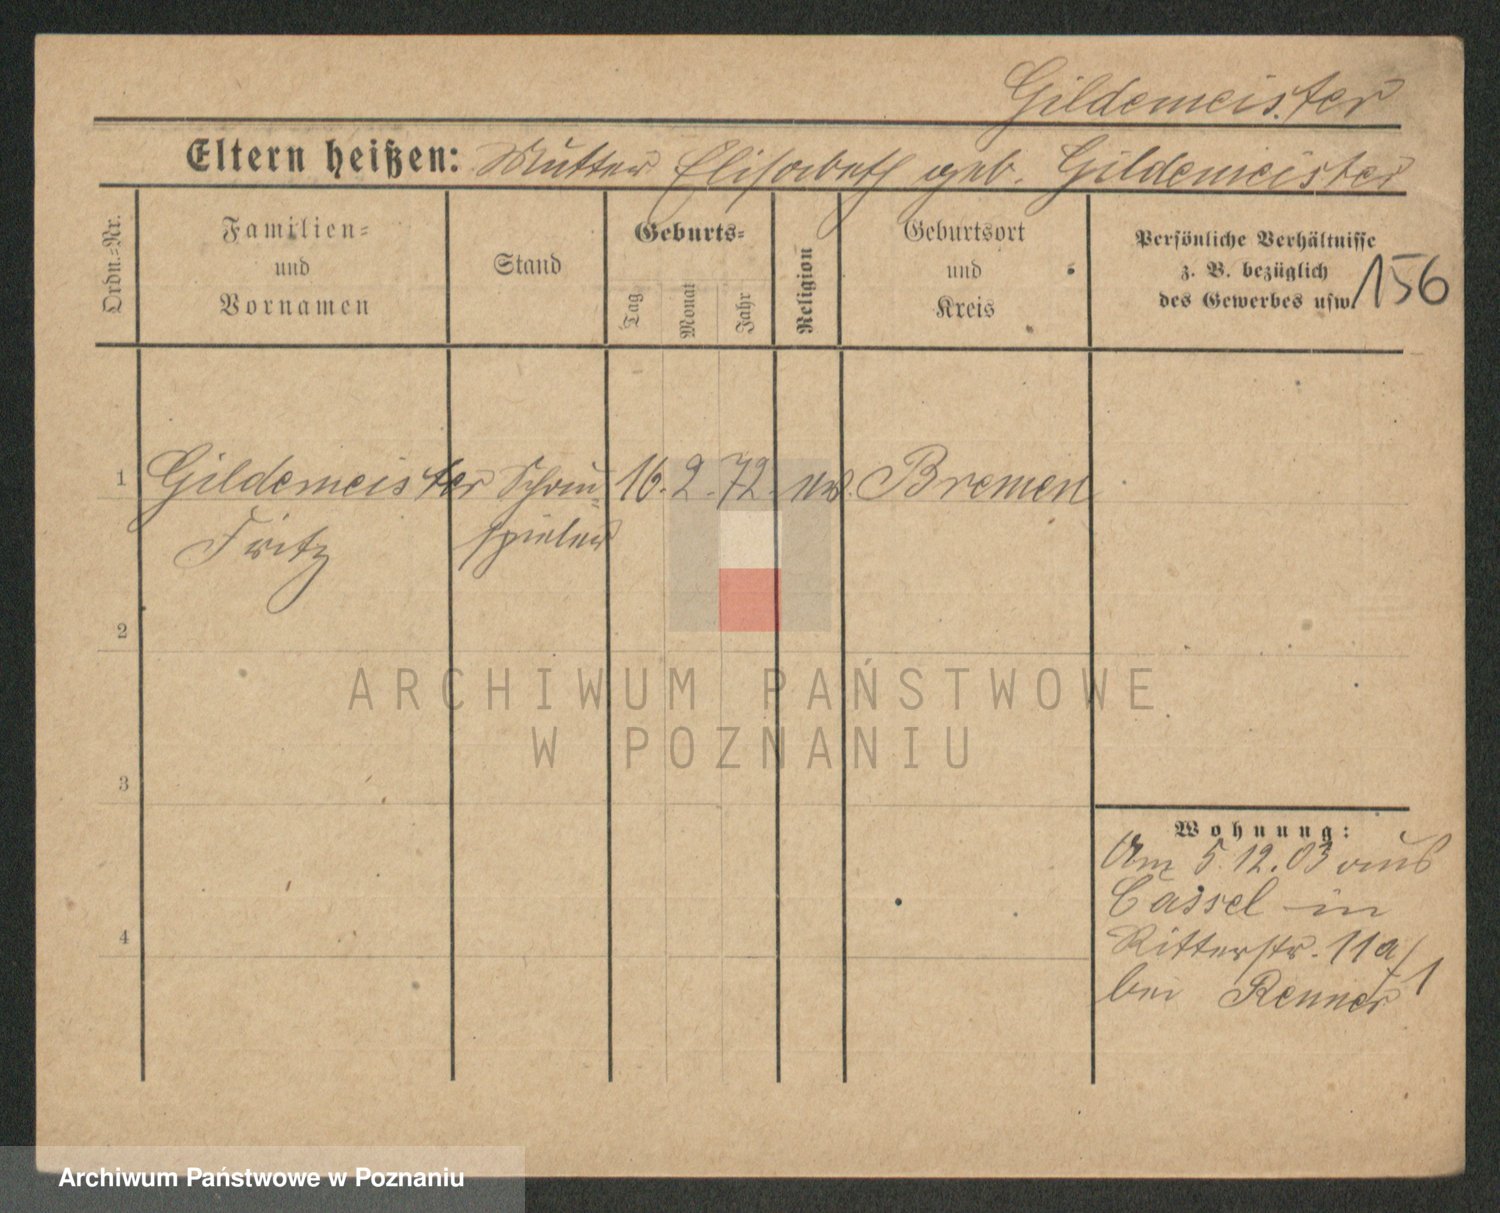 Gildemeister
Eltern heißen: Mutter Elisabeth geb. Gildemeister
Ordn.-Nr.
Familien-
und
Vornamen
Stand
Geburts-
Tag
Monat
Jahr
Religion
Geburtsort
und
Kreis
Persönliche Verhältnisse
z. B. bezüglich
des Gewerbes usw.
156
1 Gildemeister Schau- 16. 2. 72. ev. Bremen
Fritz spieler
2
3
4
Wohnung:
Am 5.12.03 aus
Cassel in
Ritterstr. 11a/1
bei Renner
ARCHIWUM PAŃSTWOWE
W POZNANIU
Archiwum Państwowe w Poznaniu